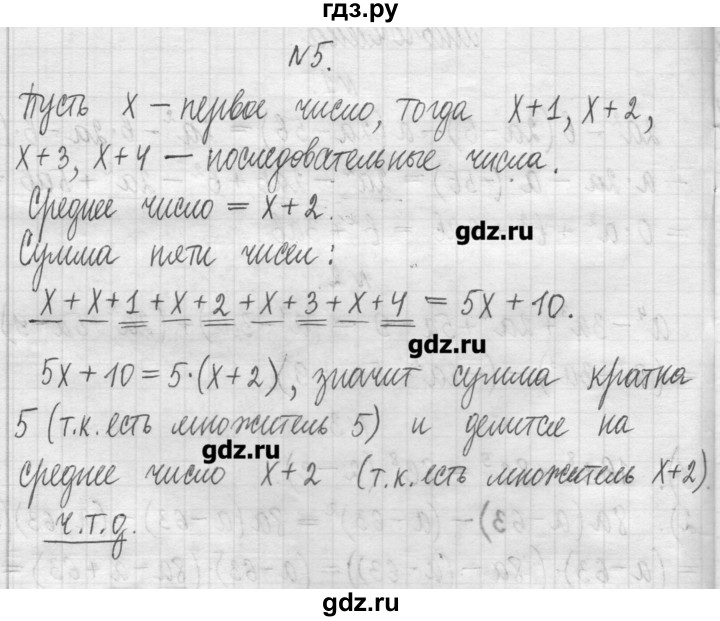 гдз.ру
№5.
Пусть x – первое число, тогда x+1, x+2,
x+3, x+4 – последовательные числа.
Среднее число = x+2.
gdz.ru
Сумма пяти чисел:
x+x+1+x+2+x+3+x+4 = 5x+10.
gdz.ru
5x+10=5·(x+2), значит сумма кратна
5 (т.к. есть множитель 5) и делится на
gdz.ru
среднее число x+2 (т.к. есть множитель x+2).
ч.т.д.
gdz.ru